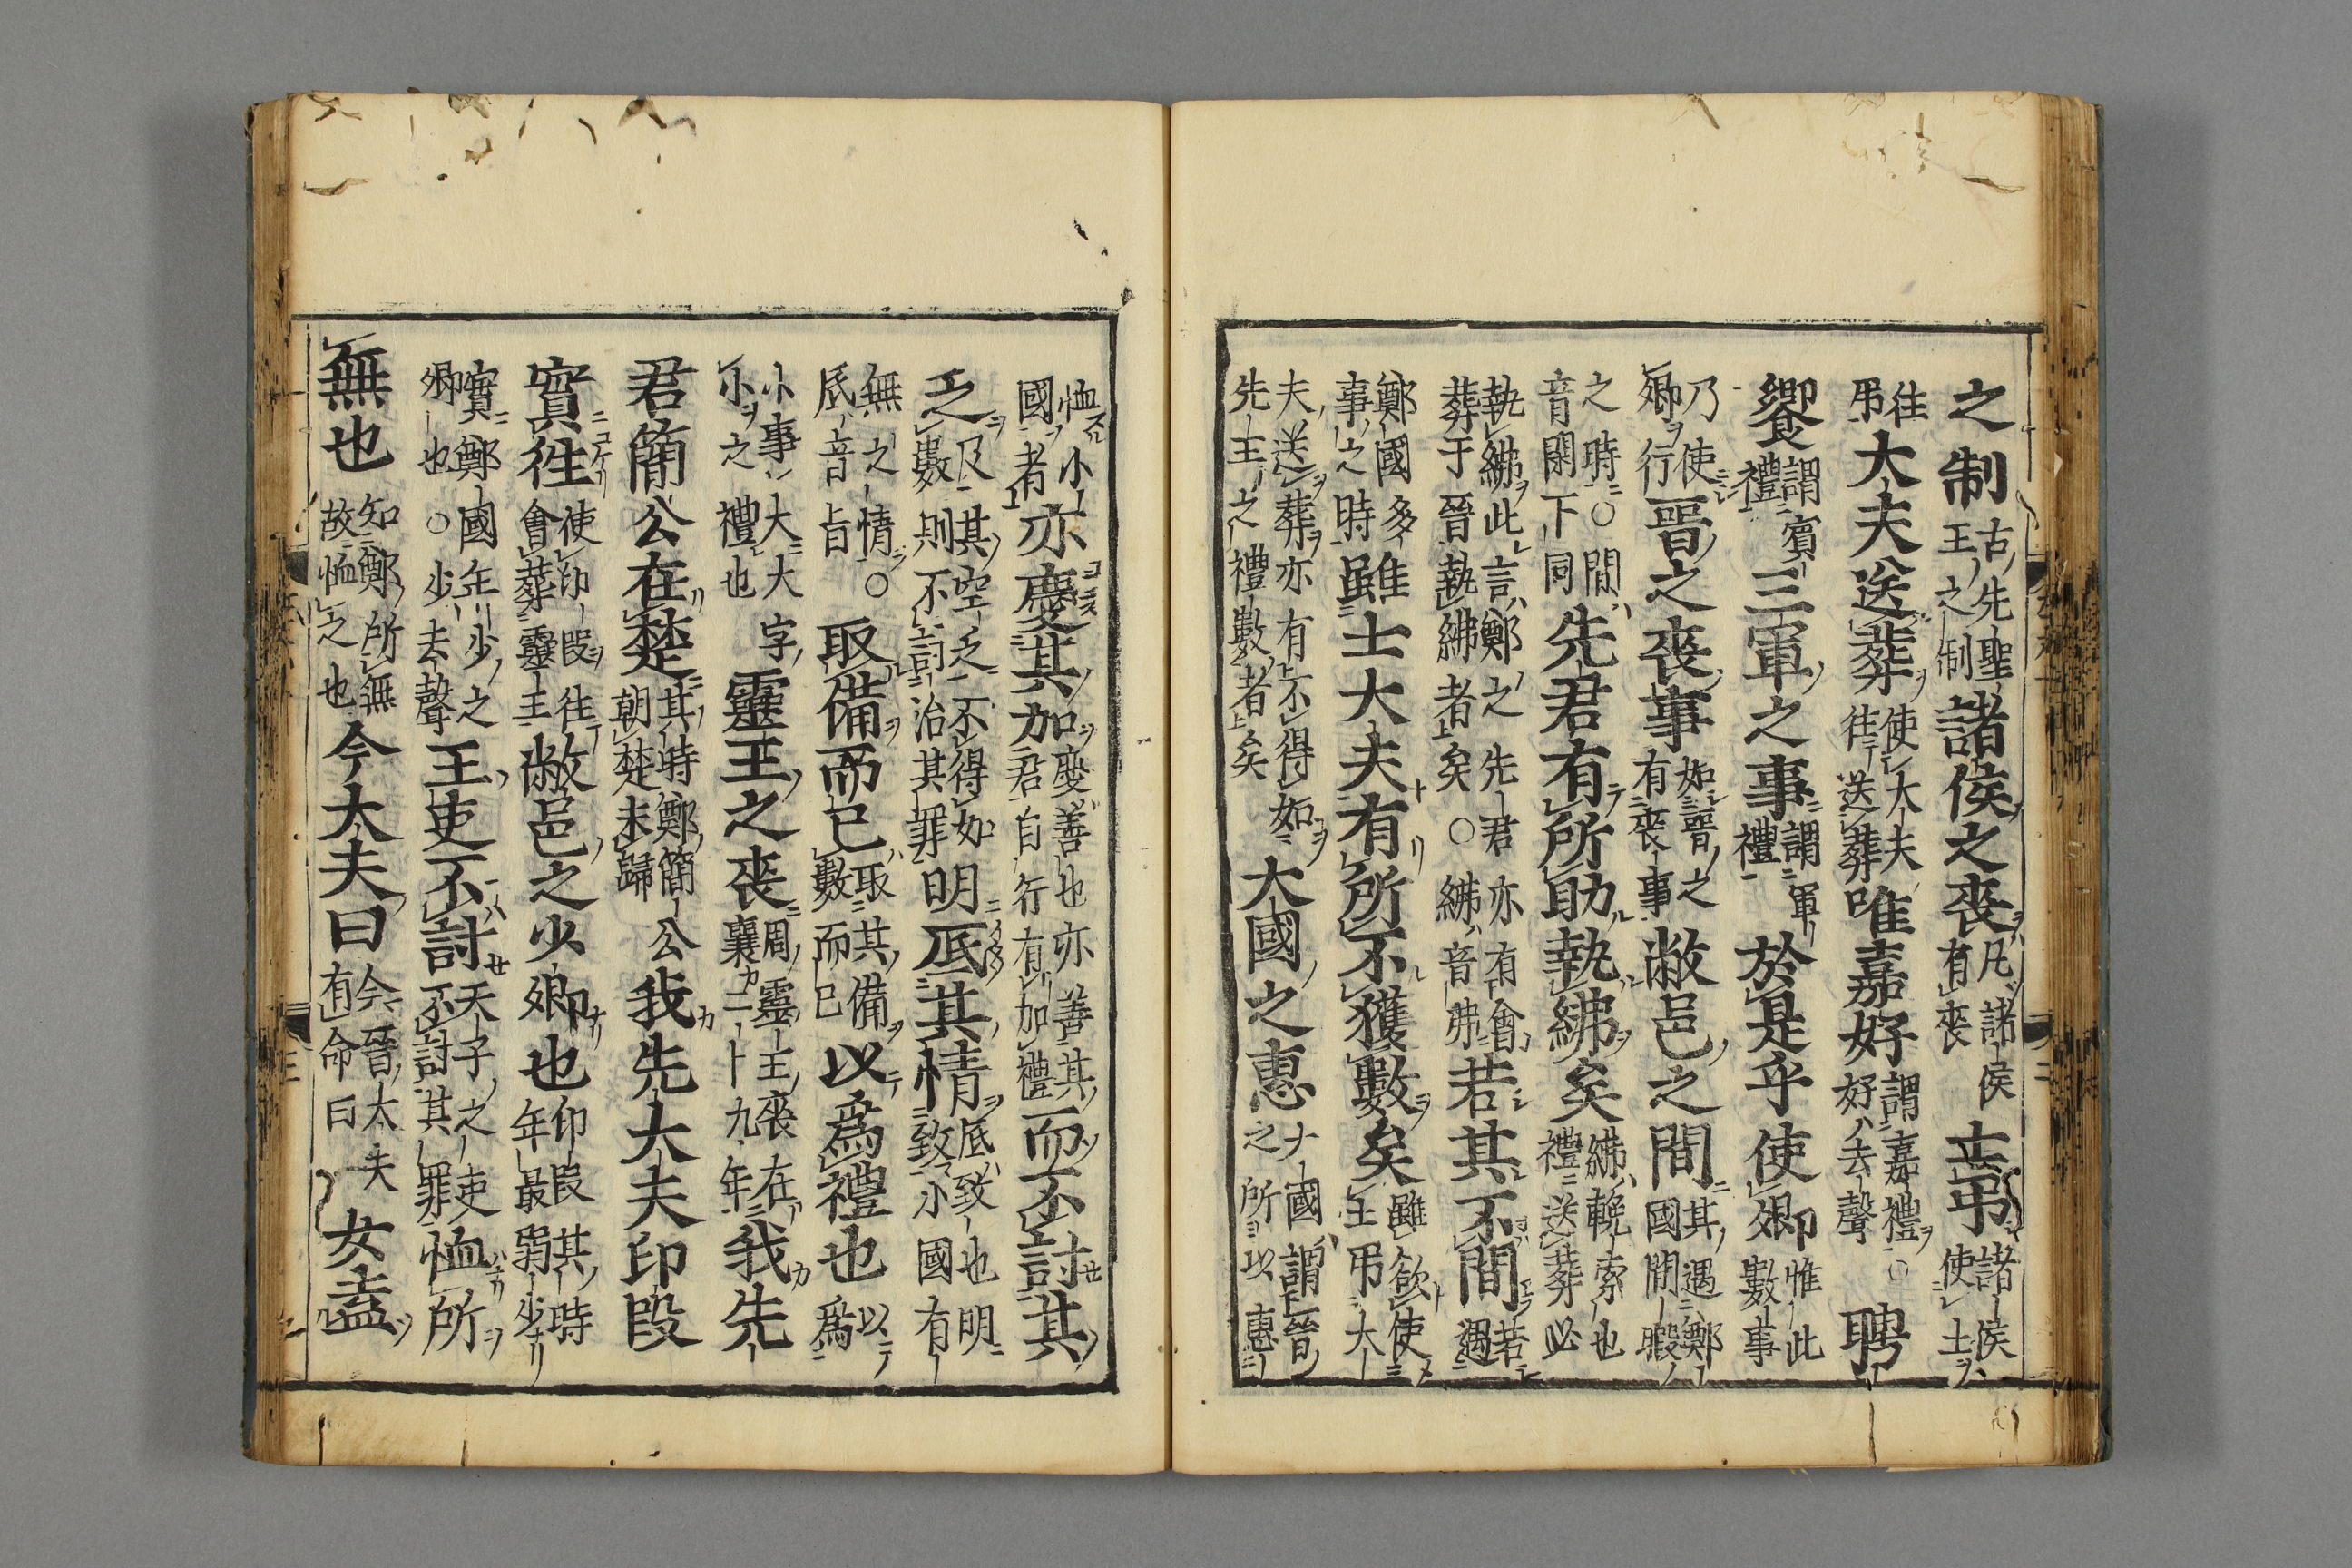 之制古先聖王之制諸侯之喪凡諸侯有喪士弔諸侯使士
往弔大夫送葬使大夫往送葬唯嘉好謂嘉禮好去聲○聘
饗謂賓禮三軍之事謂軍禮於是乎使卿惟此數事
乃使卿行晉之喪事如晉之有喪事敝邑之間其遇鄭國閒暇
之時○間音閑下同先君有所助執紼矣紼輓索也禮送葬必
執紼此言鄭之先君亦有會葬于晉執紼者矣○紼音弗若其不間若遇
鄭國多事之時雖士大夫有所不獲數矣雖欲使士弔大
夫送葬亦有不得如先王之禮數者矣大國之惠大國謂晉之所以惠
恤小國者亦慶其加慶善也亦善其君自行有加禮而不討其
乏及其空乏不得如數則不討治其罪明底其情底致也明致小國有
無之情○底音旨取備而已取其備數而已以爲禮也以爲
小事大大字小之禮也靈王之喪周靈王喪在襄二十九年我先
君簡公在楚其時鄭簡公朝楚未歸我先大夫印段
實徃使印段往會葬靈王敝邑之少卿也印段其時年最弱少
實鄭國年少之卿也○少去聲王吏不討天子之吏不討其罪恤所
無也知鄭所無故恤之也今大夫曰今晉大夫有命曰女盍